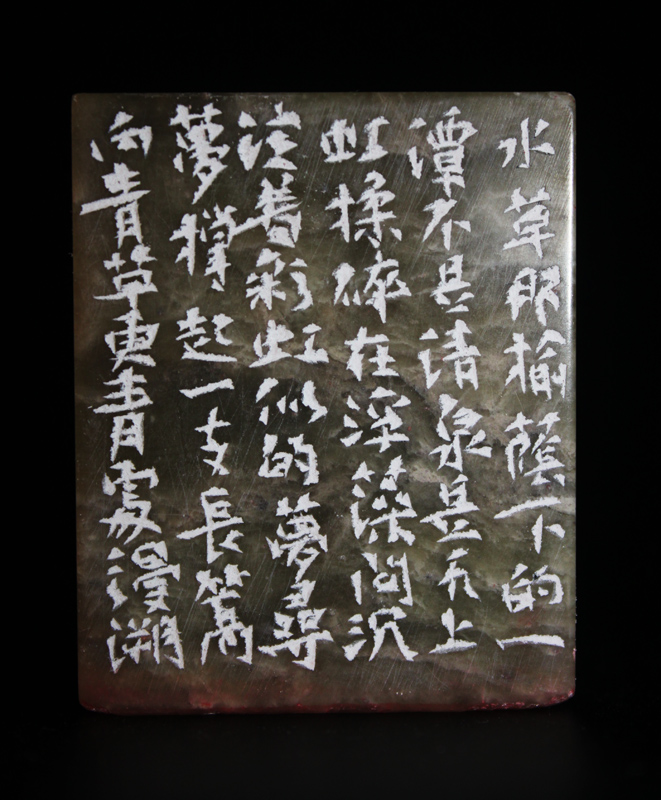 水草那榆蔭下的一
潭不是清泉是天上
虹揉碎在浮藻間沉
淀着彩虹似的夢尋
夢撐起一支長篙
向青草更青處漫溯